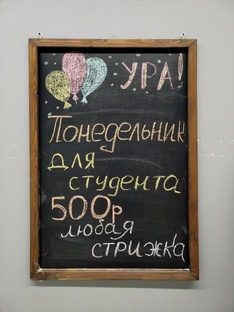 УРА!
Понедельник
для
студента
500р
любая
стрижка